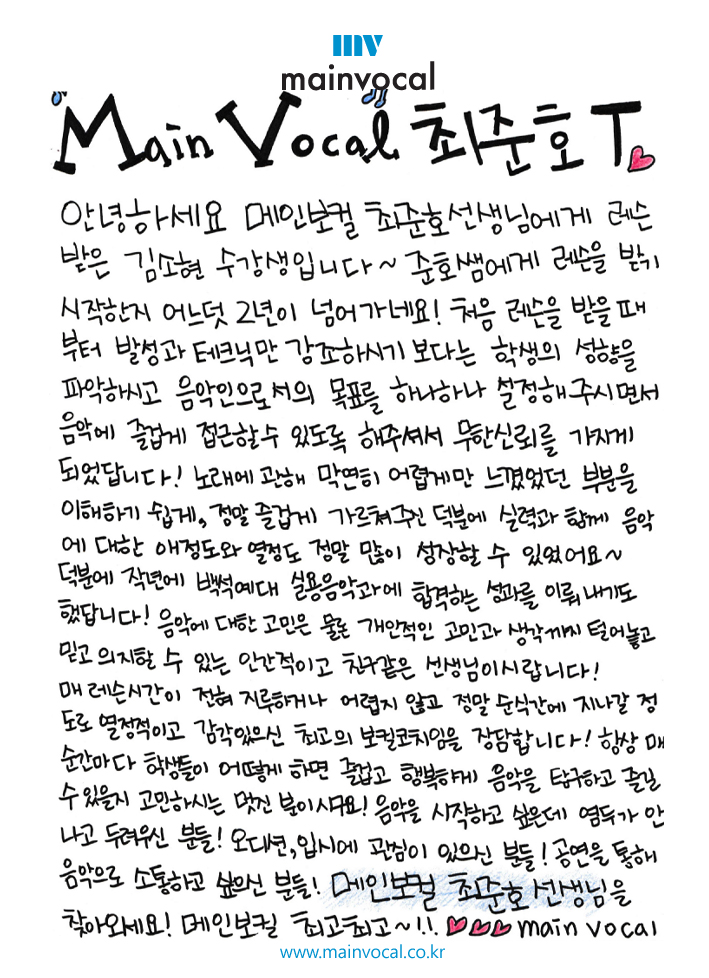 mv
mainvocal
Main Vocal 최준호 T
안녕하세요 메인보컬 최준호선생님에게 레슨
받은 김소현 수강생입니다~ 준호쌤에게 레슨을 받기
시작한지 어느덧 2년이 넘어가네요! 처음 레슨을 받을 때
부터 발성과 테크닉만 강조하시기 보다는 학생의 성향을
파악하시고 음악인으로서의 목표를 하나하나 설정해주시면서
음악에 즐겁게 접근할수 있도록 해주셔서 무한신뢰를 가지게
되었답니다! 노래에 관해 막연히 어렵게만 느꼈었던 부분을
이해하기 쉽게, 정말 즐겁게 가르쳐주신 덕분에 실력과 함께 음악
에 대한 애정도와 열정도 정말 많이 성장할 수 있었어요~
덕분에 작년에 백석예대 실용음악과에 합격하는 성과를 이뤄내기도
했답니다! 음악에 대한 고민은 물론 개인적인 고민과 생각까지 털어놓고
믿고 의지할 수 있는 인간적이고 친구같은 선생님이시랍니다!
매 레슨시간이 전혀 지루하거나 어렵지 않고 정말 순식간에 지나갈 정
도로 열정적이고 감각있으신 최고의 보컬코치임을 장담합니다! 항상 매
순간마다 학생들이 어떻게 하면 즐겁고 행복하게 음악을 탐구하고 즐길
수 있을지 고민하시는 멋진 분이시구요! 음악을 시작하고 싶은데 엄두가 안
나고 두려우신 분들! 오디션, 입시에 관심이 있으신 분들! 공연을 통해
음악으로 소통하고 싶으신 분들! 메인보컬 최준호선생님을
찾아오세요! 메인보컬 최고최고~!! main vocal
www.mainvocal.co.kr